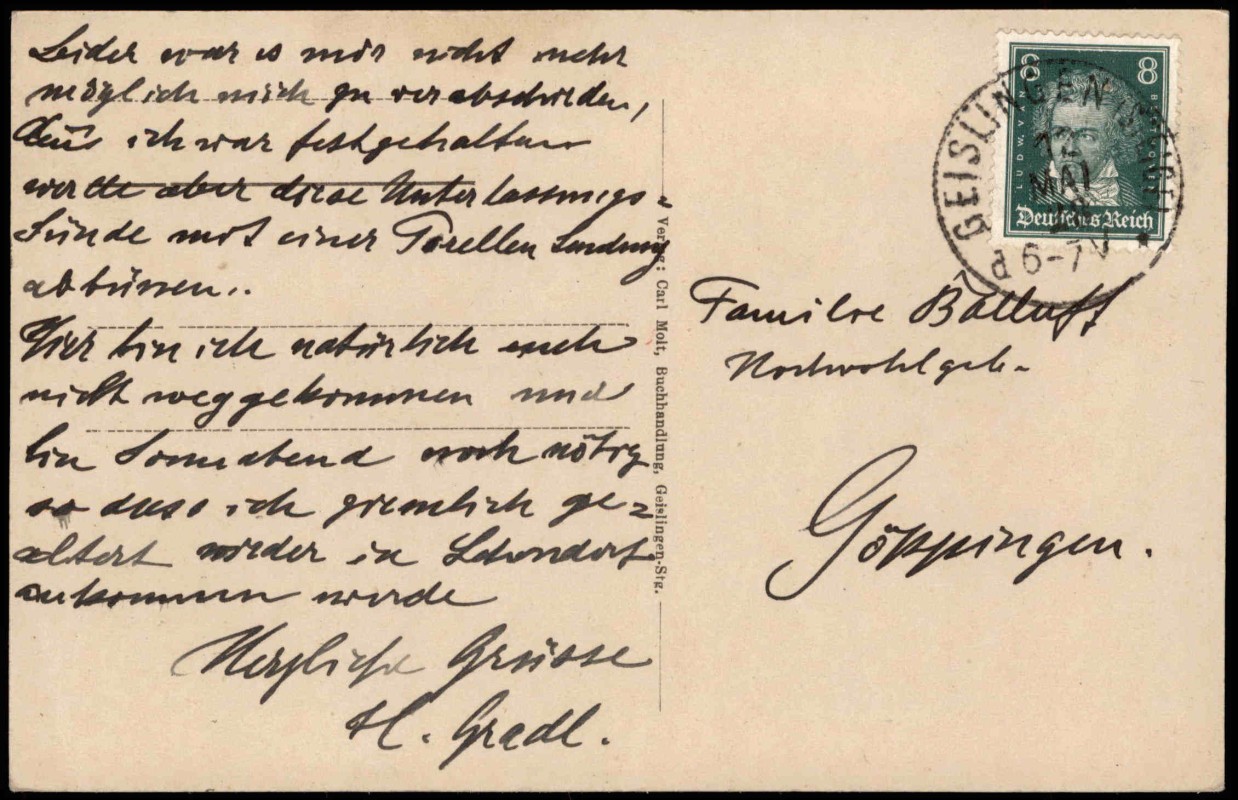 Leider war es mir nicht mehr
möglich mich zu verabschieden,
ich war festgehalten
werde aber diese Unterlassungs=
Sünde mit einer Forellen Sendung
abbüssen..
Hier bin ich natürlich auch
nicht weggekommen und
bin Sonnabend noch nötig
so dass ich ziemlich ge=
altert wieder in Schondorf
ankommen werde
Herzliche Grüsse
H. Gradl.
Verlag: Carl Molt, Buchhandlung, Geislingen-Stg.
GEISLINGEN (STEIGE)
12
MAI
6-7V
8 8
LUDWIG VAN BEETHOVEN
Deutsches Reich
Familie Balluff
Hochwohlgeb.
Göppingen.